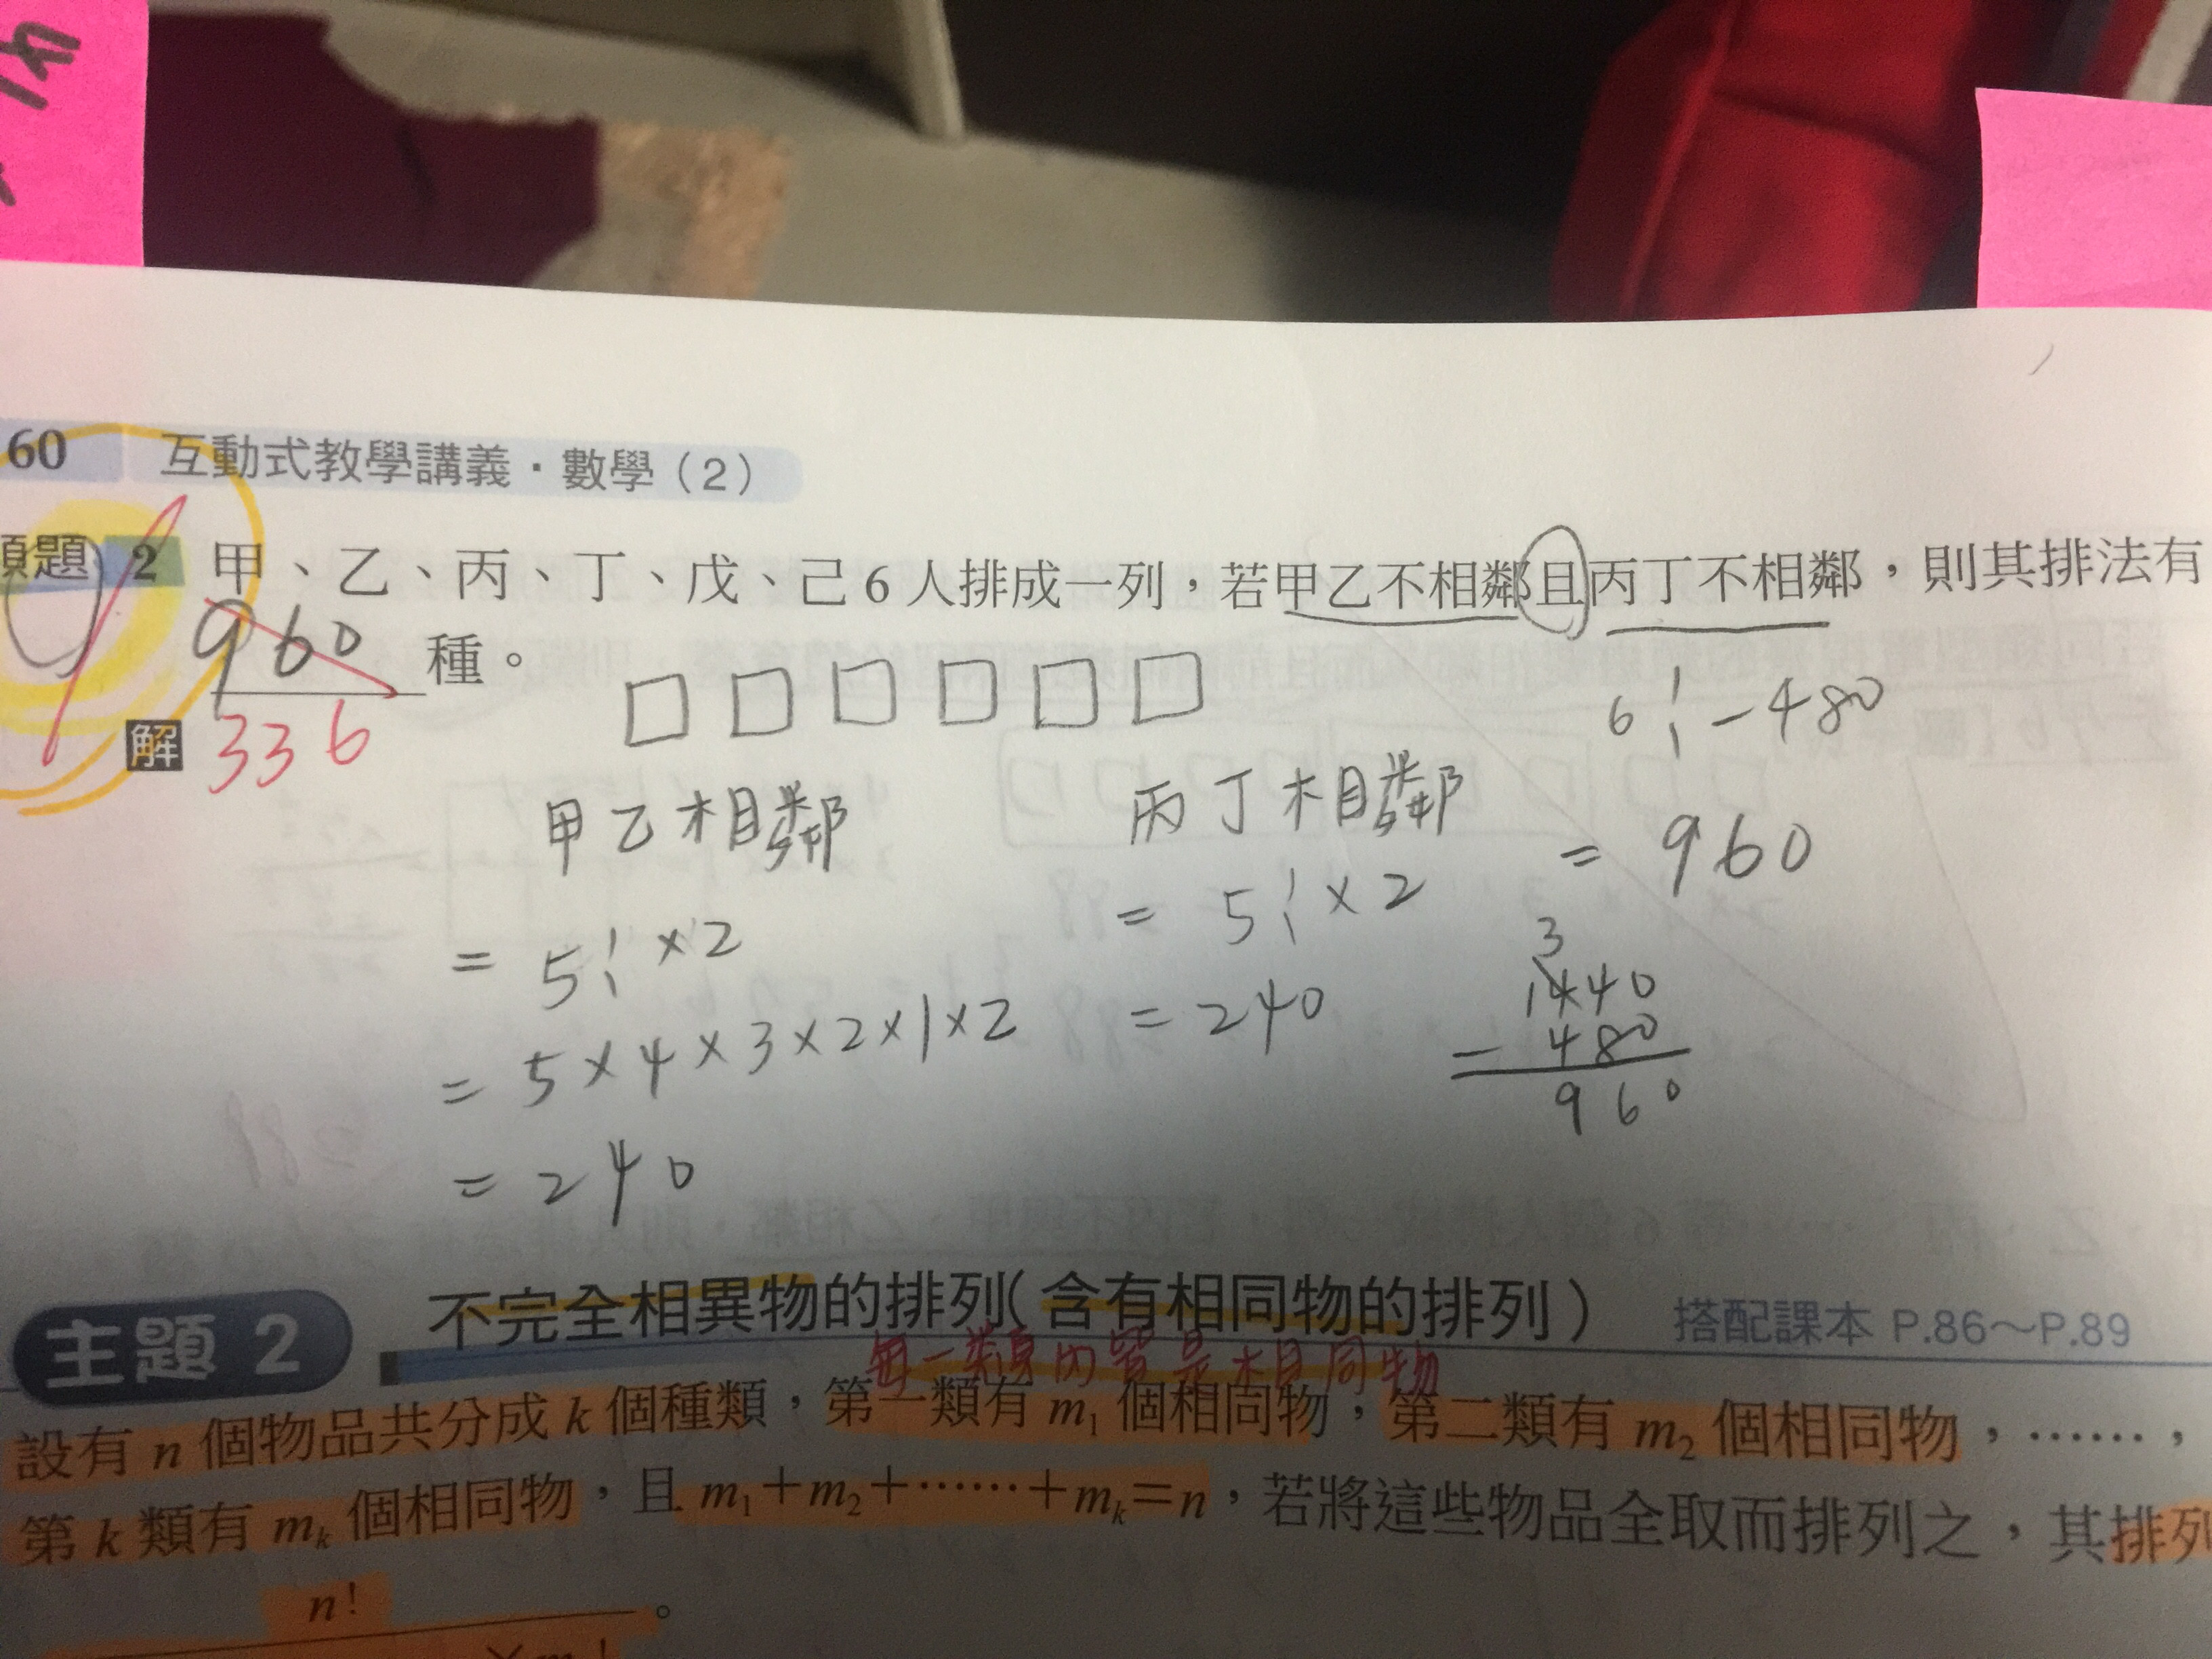 60 互動式教學講義・數學（2）
類題 2 甲、乙、丙、丁、戊、己 6 人排成一列，若甲乙不相鄰且丙丁不相鄰，則其排法有
960 種。
解 336
6! - 480
= 960
甲乙相鄰
= 5! × 2
= 5 × 4 × 3 × 2 × 1 × 2
= 240
丙丁相鄰
= 5! × 2
= 240
3
1440
- 480
960
主題 2 不完全相異物的排列（含有相同物的排列） 搭配課本 P.86～P.89
每一類內皆是相同物
設有 n 個物品共分成 k 個種類，第一類有 m₁ 個相同物，第二類有 m₂ 個相同物，……，
第 k 類有 mₖ 個相同物，且 m₁＋m₂＋……＋mₖ＝n，若將這些物品全取而排列之，其排列
n!
。